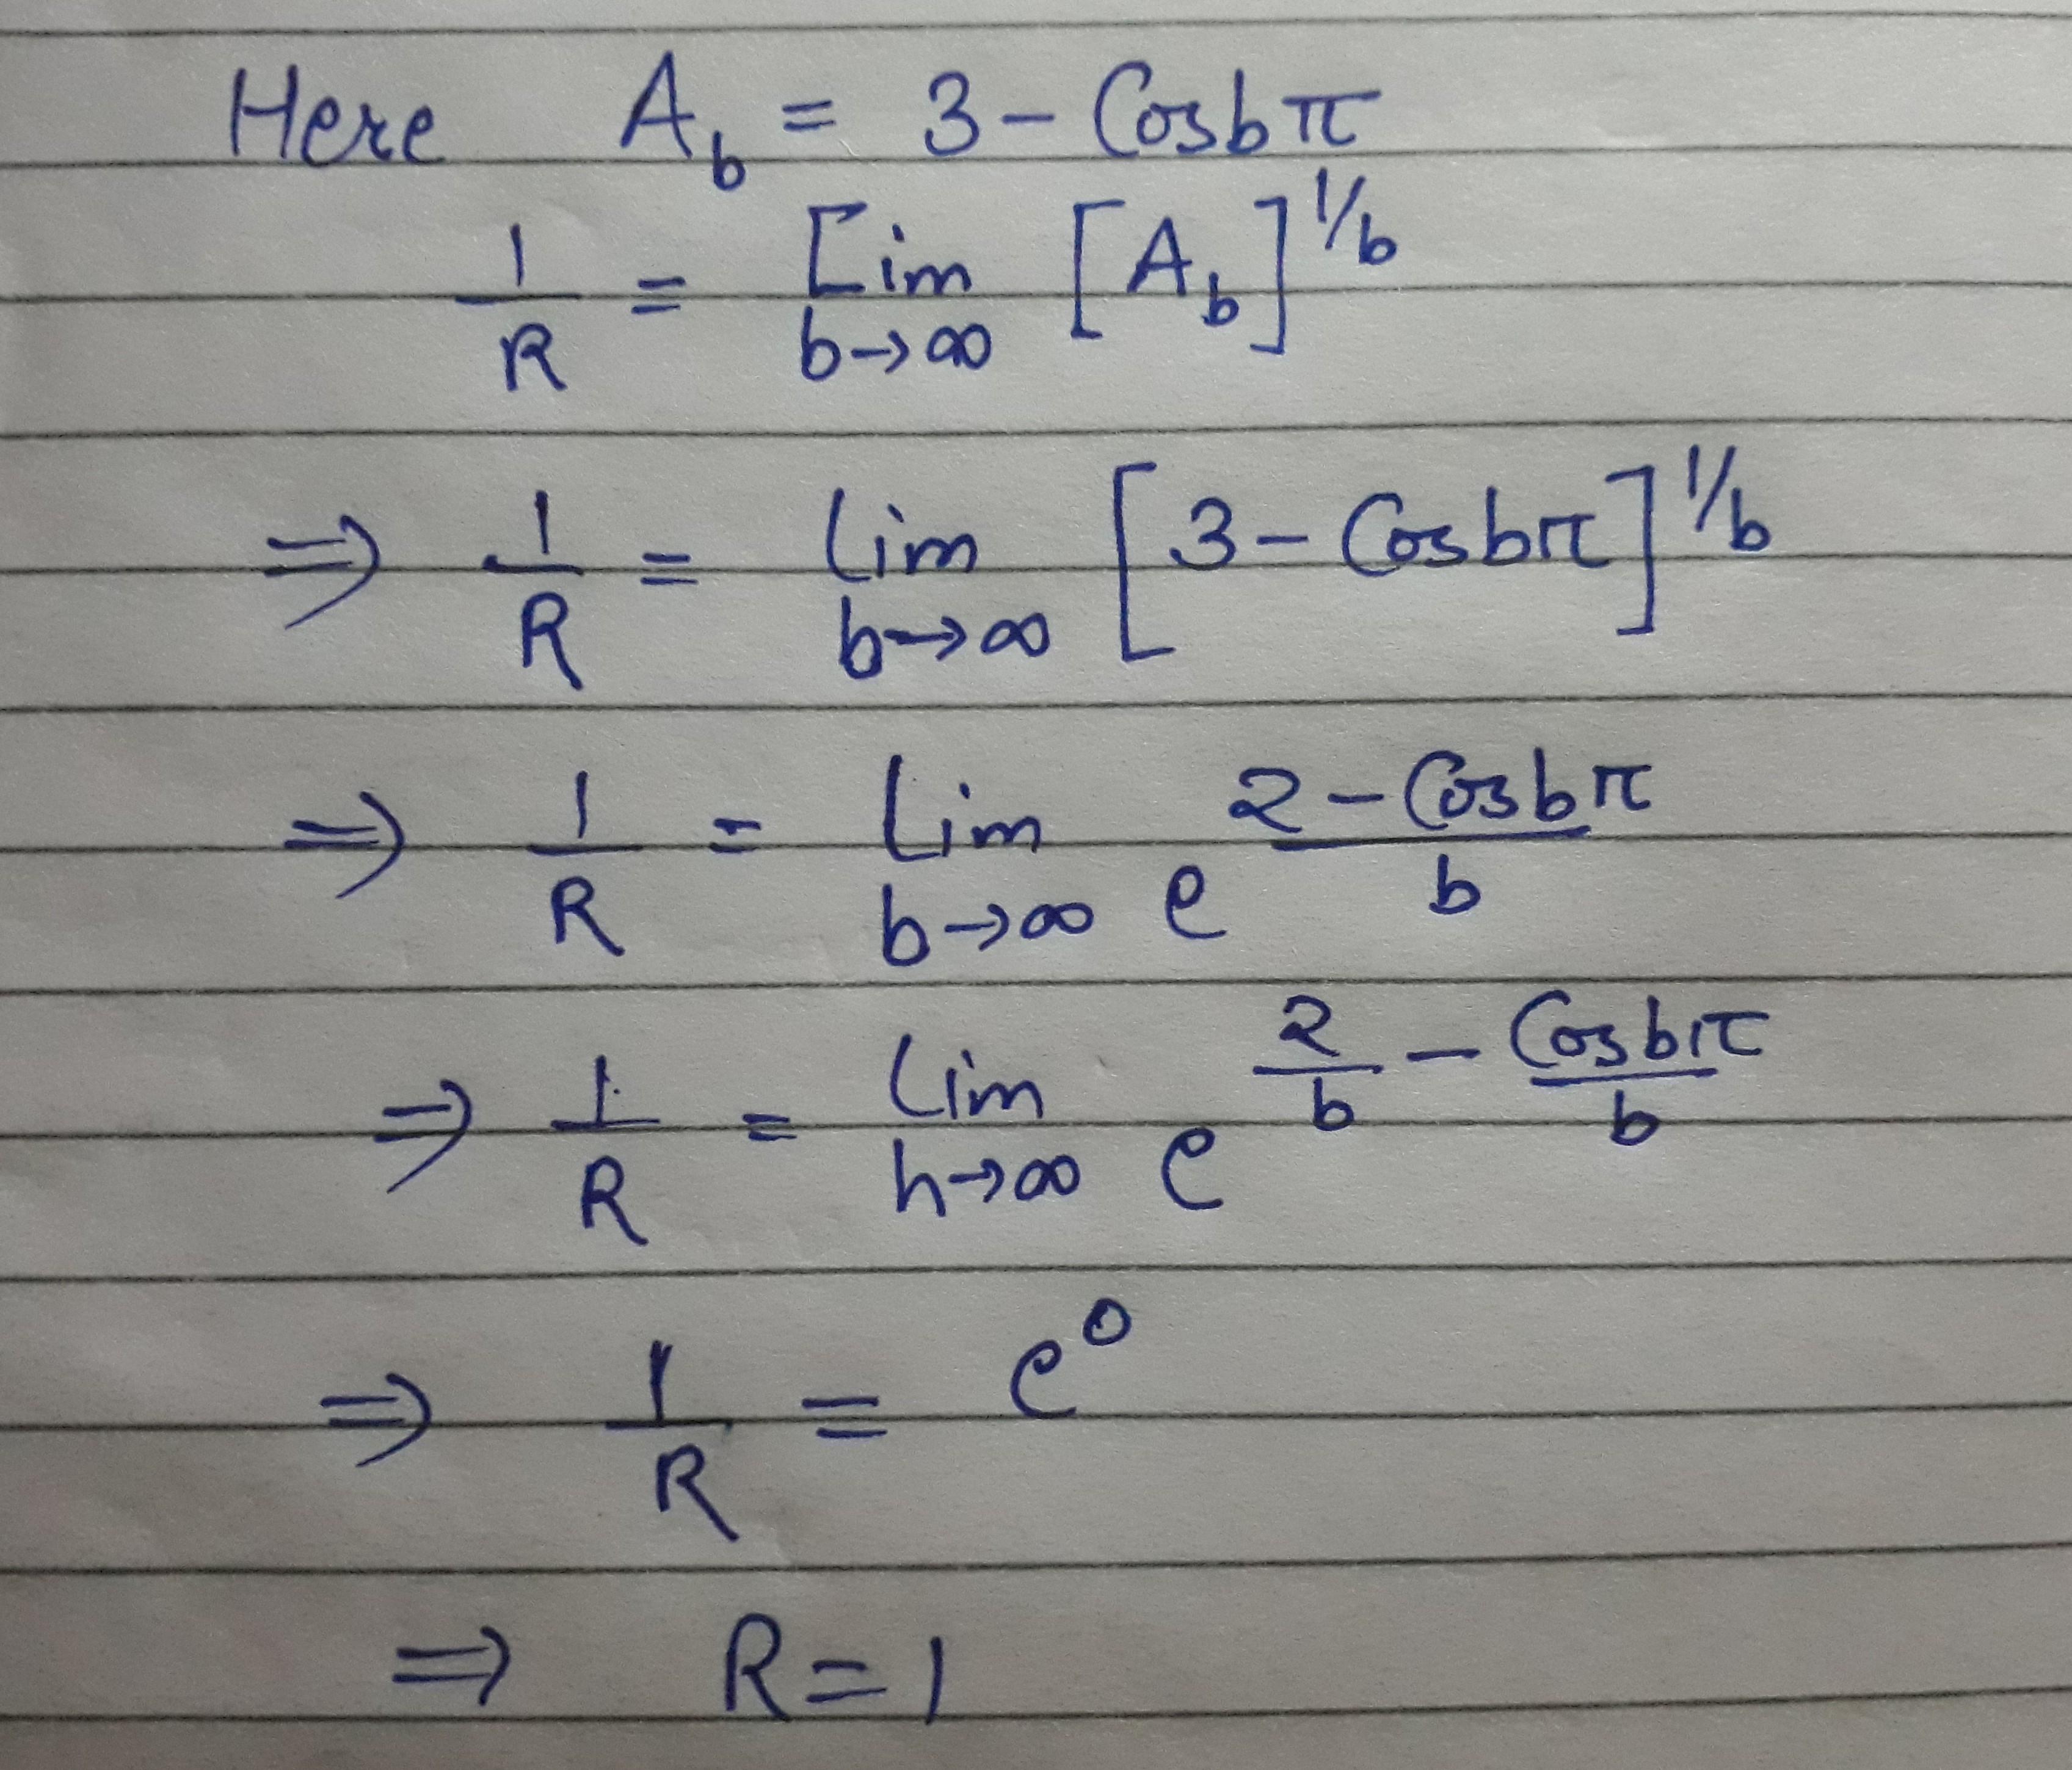 Here A_b = 3 - Cos bπ
1/R = Lim b→∞ [A_b]^1/b
⇒ 1/R = Lim b→∞ [3 - Cos bπ]^1/b
⇒ 1/R = Lim b→∞ e^(2 - Cos bπ)/b
⇒ 1/R = Lim h→∞ e^2/b - Cos bπ/b
⇒ 1/R = e^0
⇒ R = 1